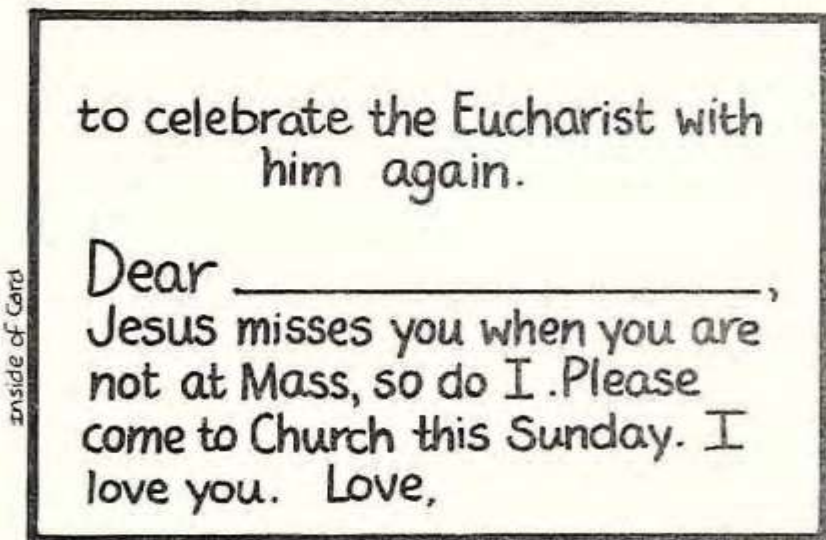 to celebrate the Eucharist with
him again.
Dear ____________________,
Jesus misses you when you are
not at Mass, so do I. Please
come to Church this Sunday. I
love you. Love,
Inside of Card